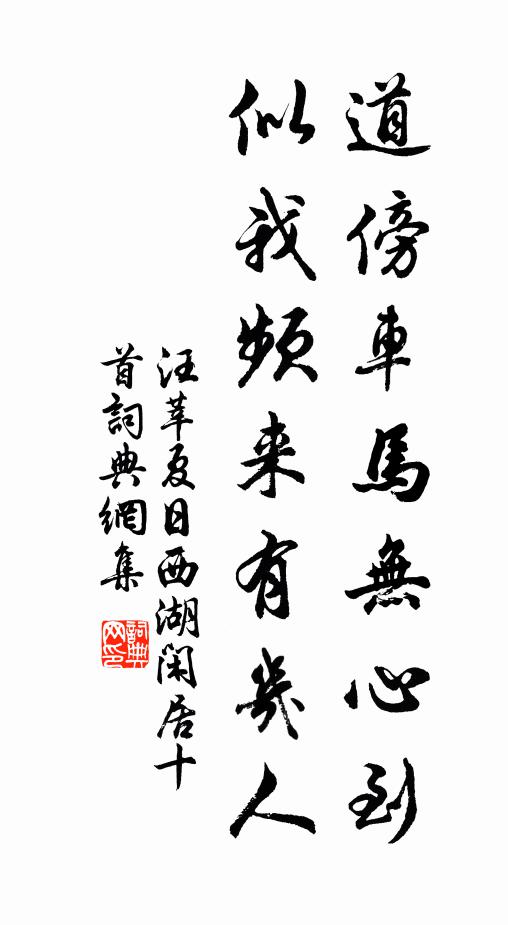 道傍車馬無心到
似我頻来有幾人
汪莘夏日西湖閑居十
首詞典網集
詞典网印